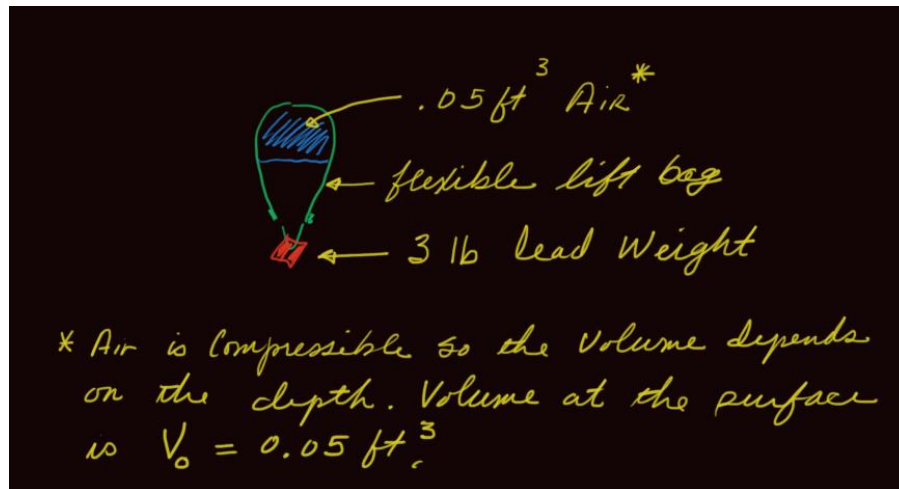 .05 ft³ Air*
flexible lift bag
3 lb lead Weight
* Air is Compressible so the Volume depends
on the depth. Volume at the surface
is V₀ = 0.05 ft³.